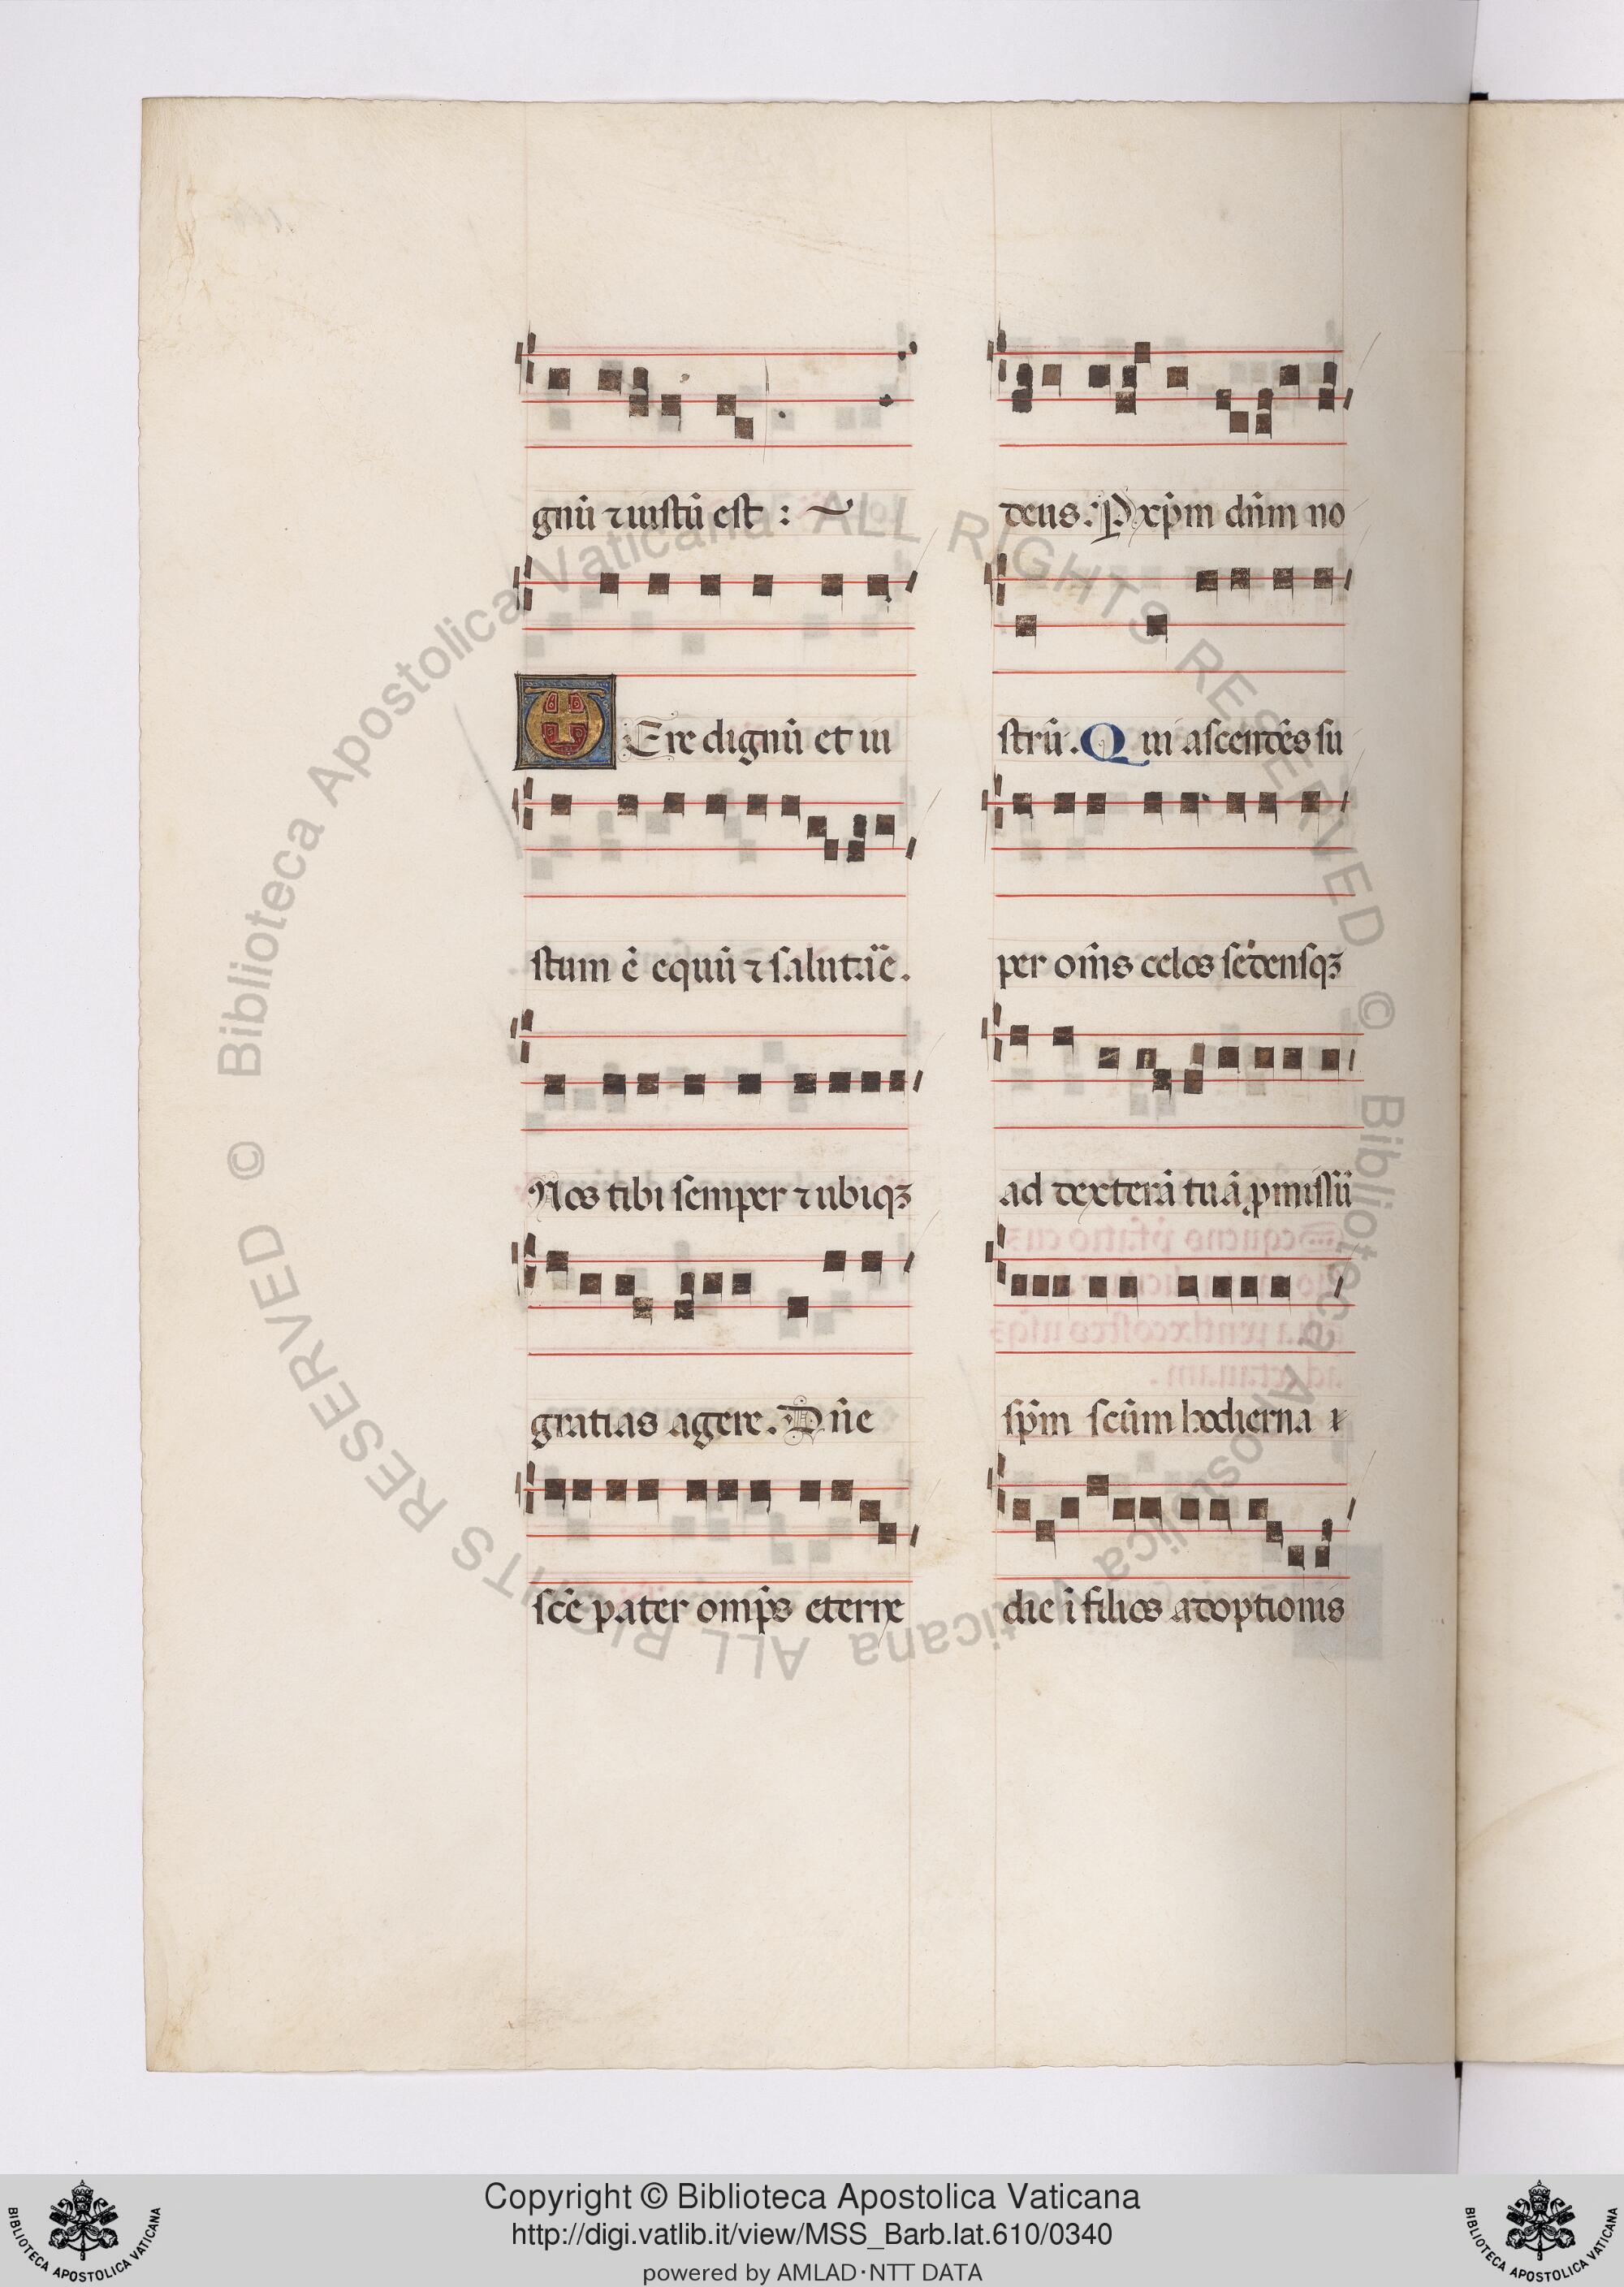 gnū ⁊ iustū est : ~
VEre dignū et iu
stum ē equū ⁊ salutare.
Nos tibi semper ⁊ ubiqꝫ
gratias agere. Dn̄e
sc̄e pater omp̄s eterne
deus. P xp̄m dn̄m no
strū. Qui ascendēs su
per om̄s celos sedensqꝫ
ad dexterā tuā ꝓmissū
sp̄m sc̄um hodierna
die ī filios adoptionis
© Biblioteca Apostolica Vaticana ALL RIGHTS RESERVED © Biblioteca Apostolica Vaticana ALL RIGHTS RESERVED
Copyright © Biblioteca Apostolica Vaticana
http://digi.vatlib.it/view/MSS_Barb.lat.610/0340
powered by AMLAD·NTT DATA
BIBLIOTECA APOSTOLICA VATICANA
BIBLIOTECA APOSTOLICA VATICANA